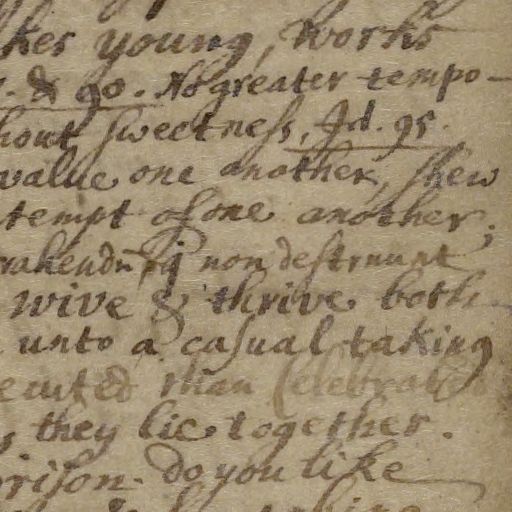 ker young, works
. & 90. No greater tempo-
hout sweetness, Id. 95.
value one another, shew
tempt of one another;
non destruunt
wive & thrive both
unto a casual taking
man Celebrated
they lie together.
rison. do you like